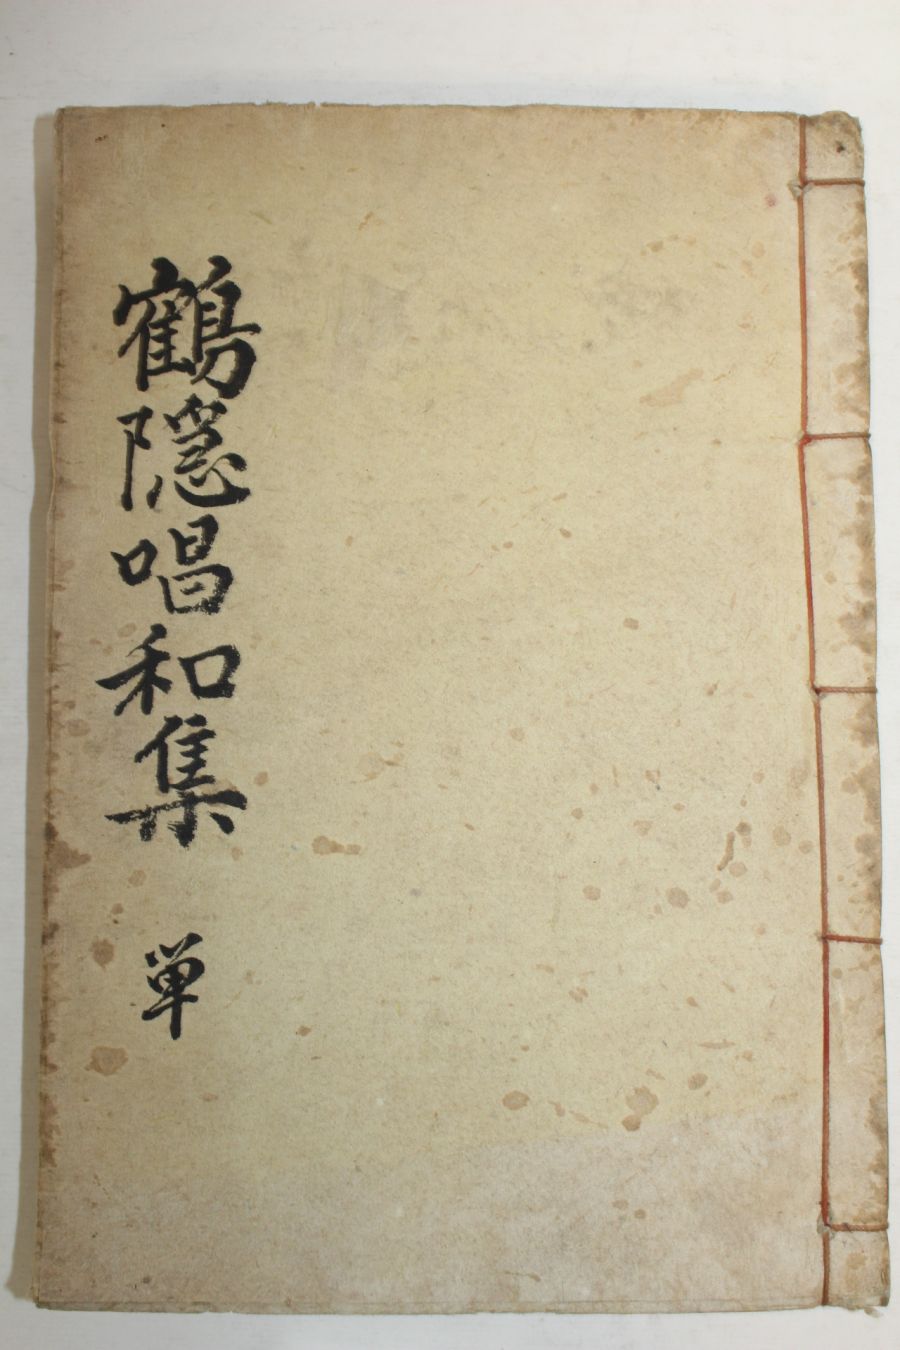 鶴隱唱和集 単